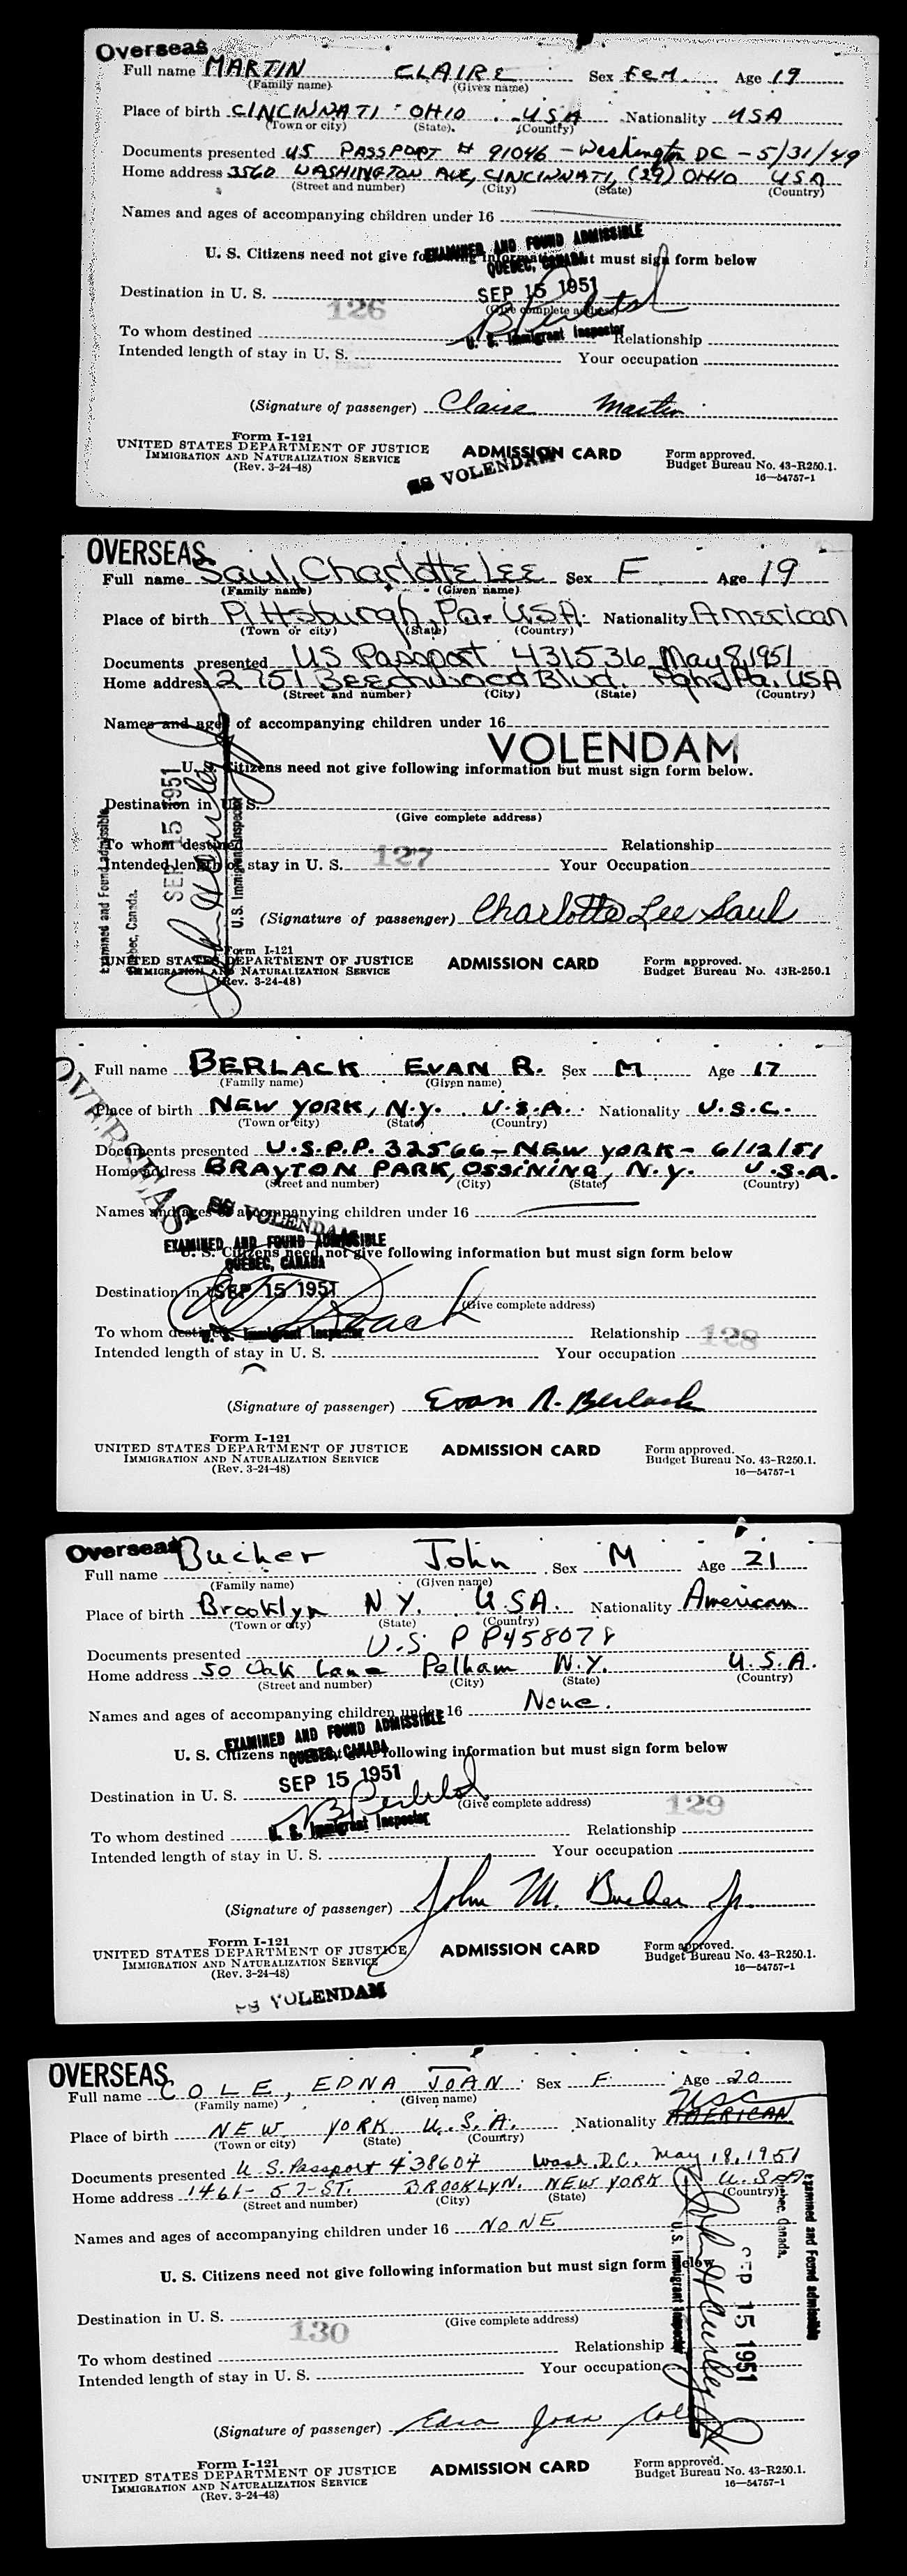 Overseas
Full name MARTIN CLAIRE Sex Fem. Age 19
(Family name) (Given name)
Place of birth CINCINNATI OHIO USA Nationality USA
(Town or city) (State) (Country)
Documents presented US PASSPORT # 91046 – Washington DC – 5/31/49
Home address 3560 WASHINGTON AVE, CINCINNATI, (29) OHIO USA
(Street and number) (City) (State) (Country)
Names and ages of accompanying children under 16
EXAMINED AND FOUND ADMISSIBLE
U. S. Citizens need not give following information but must sign form below
QUEBEC, CANADA
SEP 15 1951
Destination in U. S.
126 (Give complete address)
To whom destined U. S. Immigrant Inspector Relationship
Intended length of stay in U. S. Your occupation
(Signature of passenger) Claire Martin
Form I-121
UNITED STATES DEPARTMENT OF JUSTICE
IMMIGRATION AND NATURALIZATION SERVICE
(Rev. 3-24-48)
ADMISSION CARD
SS VOLENDAM
Form approved.
Budget Bureau No. 43-R250.1.
16—54757-1
OVERSEAS
Full name Saul, Charlotte Lee Sex F Age 19
(Family name) (Given name)
Place of birth Pittsburgh, Pa. USA Nationality American
(Town or city) (State) (Country)
Documents presented US Passport 431536 May 8, 1951
Home address Beechwood Blvd. Pa. USA
(Street and number) (City) (State) (Country)
Names and ages of accompanying children under 16
VOLENDAM
U. S. Citizens need not give following information but must sign form below.
Destination in U. S.
(Give complete address)
To whom destined Relationship
Intended length of stay in U. S. 127 Your Occupation
Examined and Found admissible
Quebec, Canada.
SEP 15 1951
U.S. Immigrant Inspector
(Signature of passenger) Charlotte Lee Saul
Form I-121
UNITED STATES DEPARTMENT OF JUSTICE
IMMIGRATION AND NATURALIZATION SERVICE
(Rev. 3-24-48)
ADMISSION CARD
Form approved.
Budget Bureau No. 43R-250.1
OVERSEAS
Full name BERLACK EVAN R. Sex M Age 17
(Family name) (Given name)
Place of birth NEW YORK, N.Y. U.S.A. Nationality U.S.C.
(Town or city) (State) (Country)
Documents presented U.S.P.P. 32566 – NEW YORK – 6/12/51
Home address BRAYTON PARK, OSSINING, N.Y. U.S.A.
(Street and number) (City) (State) (Country)
Names and ages of accompanying children under 16
SS VOLENDAM
EXAMINED AND FOUND ADMISSIBLE
U. S. Citizens need not give following information but must sign form below
QUEBEC, CANADA
Destination in U. S. SEP 15 1951
(Give complete address)
To whom destined U. S. Immigrant Inspector Relationship 128
Intended length of stay in U. S. Your occupation
(Signature of passenger) Evan R. Berlack
Form I-121
UNITED STATES DEPARTMENT OF JUSTICE
IMMIGRATION AND NATURALIZATION SERVICE
(Rev. 3-24-48)
ADMISSION CARD
Form approved.
Budget Bureau No. 43-R250.1.
16—54757-1
Overseas
Full name Bucher John Sex M Age 21
(Family name) (Given name)
Place of birth Brooklyn N Y. U.S.A. Nationality American
(Town or city) (State) (Country)
Documents presented U.S. P P458078
Home address 50 Oak Lane Pelham N.Y. U.S.A.
(Street and number) (City) (State) (Country)
Names and ages of accompanying children under 16 None.
EXAMINED AND FOUND ADMISSIBLE
U. S. Citizens need not give following information but must sign form below
QUEBEC, CANADA
SEP 15 1951
Destination in U. S.
(Give complete address) 129
To whom destined U. S. Immigrant Inspector Relationship
Intended length of stay in U. S. Your occupation
(Signature of passenger) John M. Bucher Jr.
Form I-121
UNITED STATES DEPARTMENT OF JUSTICE
IMMIGRATION AND NATURALIZATION SERVICE
(Rev. 3-24-48)
ADMISSION CARD
Form approved.
Budget Bureau No. 43-R250.1.
16—54757-1
SS VOLENDAM
OVERSEAS
Full name COLE, EDNA JOAN Sex F. Age 20
(Family name) (Given name)
USC
Place of birth NEW YORK U.S.A. Nationality AMERICAN
(Town or city) (State) (Country)
Documents presented U S. Passport 438604 Wash. D.C. May 18, 1951
Home address 1461- 57- ST. BROOKLYN. NEW YORK U.S.A
(Street and number) (City) (State) (Country)
Names and ages of accompanying children under 16 NONE
U. S. Citizens need not give following information but must sign form below
Destination in U. S.
130 (Give complete address)
To whom destined Relationship
Intended length of stay in U. S. Your occupation
Examined and Found admissible
Quebec, Canada.
SEP 15 1951
U.S. Immigrant Inspector
(Signature of passenger) Edna Joan Cole
Form I-121
UNITED STATES DEPARTMENT OF JUSTICE
IMMIGRATION AND NATURALIZATION SERVICE
(Rev. 3-24-48)
ADMISSION CARD
Form approved.
Budget Bureau No. 43-R250.1.
16—54757-1